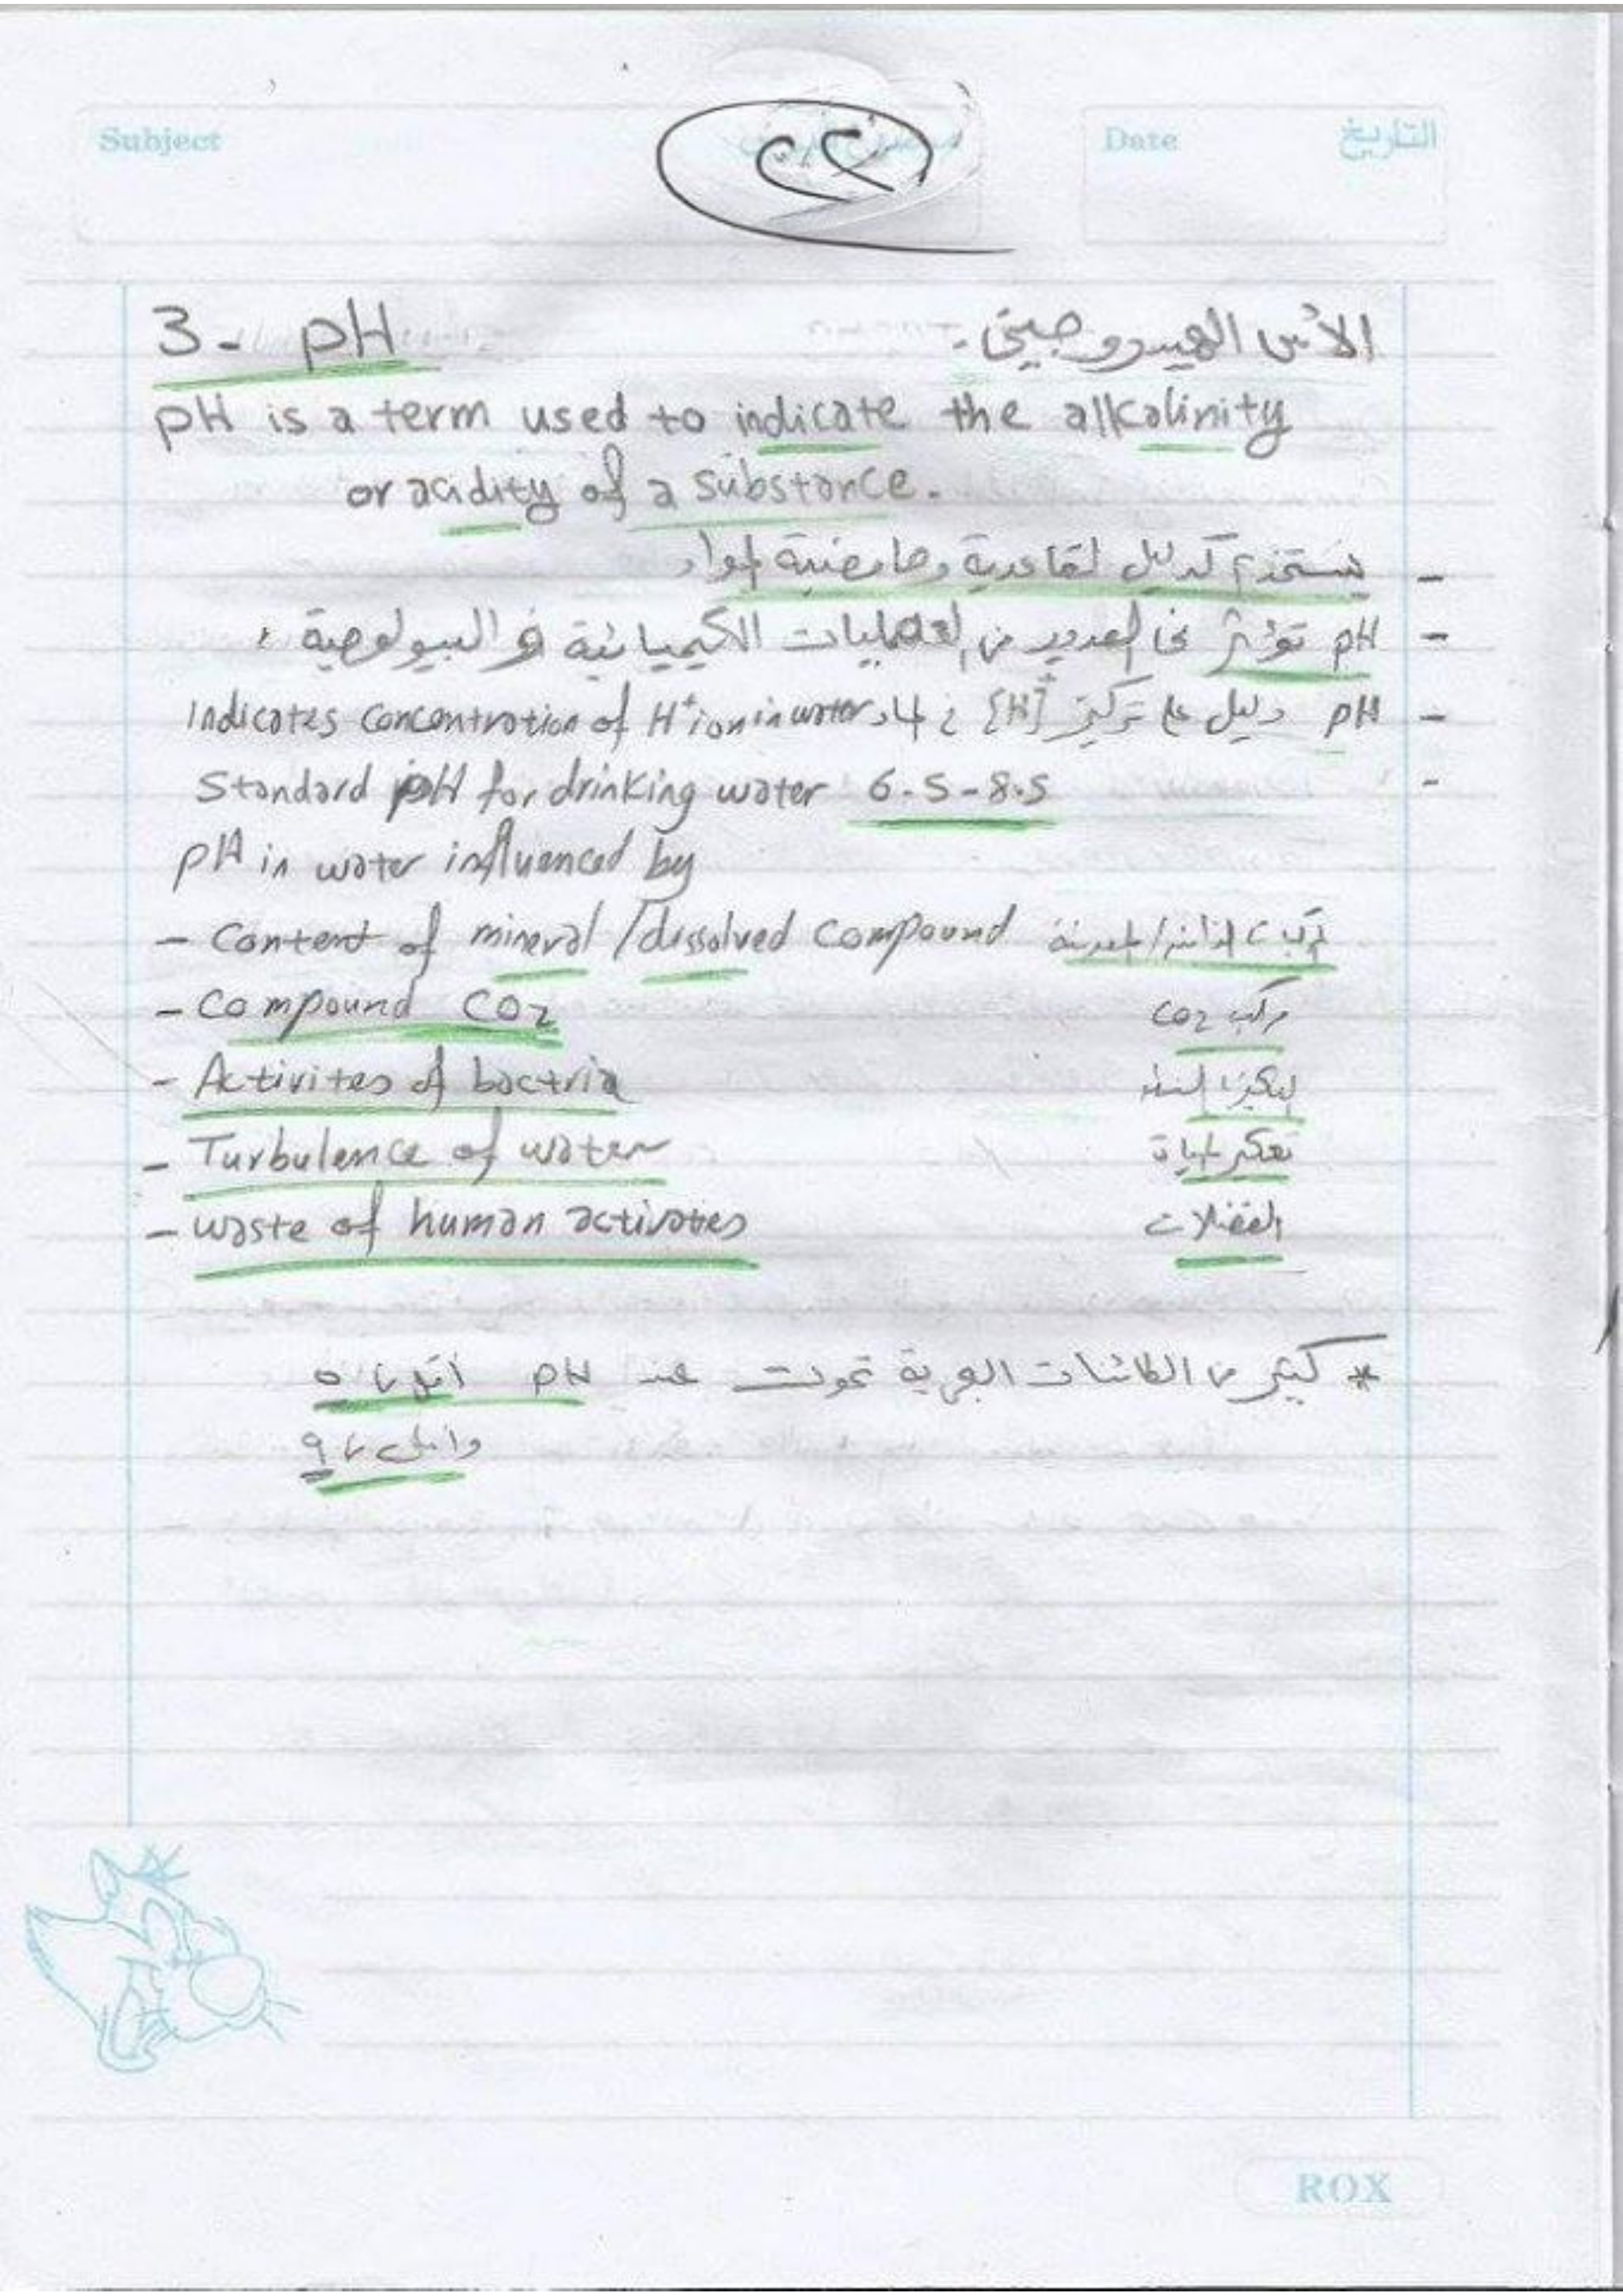 Subject
Date التاريخ
٢٢
3- pH الأس الهيدروجيني -
pH is a term used to indicate the alkalinity
or acidity of a substance.
- يستخدم كدليل لقاعدية وحامضية المواد
- pH تؤثر في العديد من العمليات الكيميائية و البيولوجية
- pH دليل على تركيز [H]+ في الماء Indicates concentration of H+ ion in water
- Standard pH for drinking water 6.5-8.5
pH in water influenced by
- Content of mineral / dissolved compound
- Compound CO2 مركب CO2
- Activites of bactria البكتريا
- Turbulence of water تعكير المياة
- waste of human activates الفضلات
* كثير من الكائنات البحرية تموت عند pH أقل من ٥
من ٩
ROX